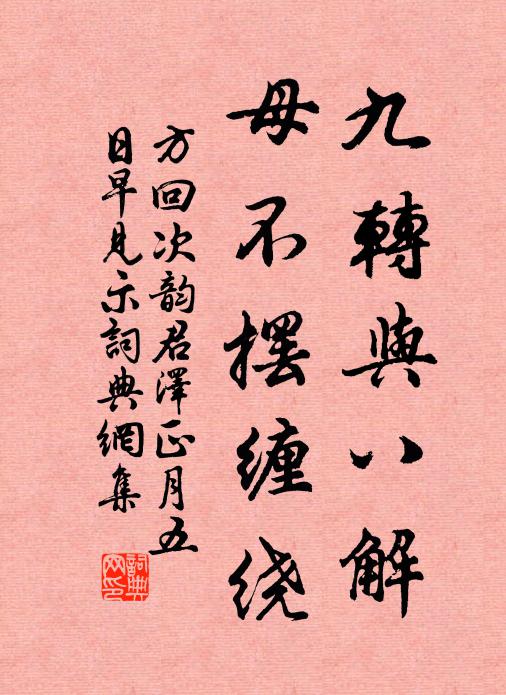 九轉與八解
毋不擺缠绕
方回次韵君澤正月五
日早見示詞典網集
詞典
网印